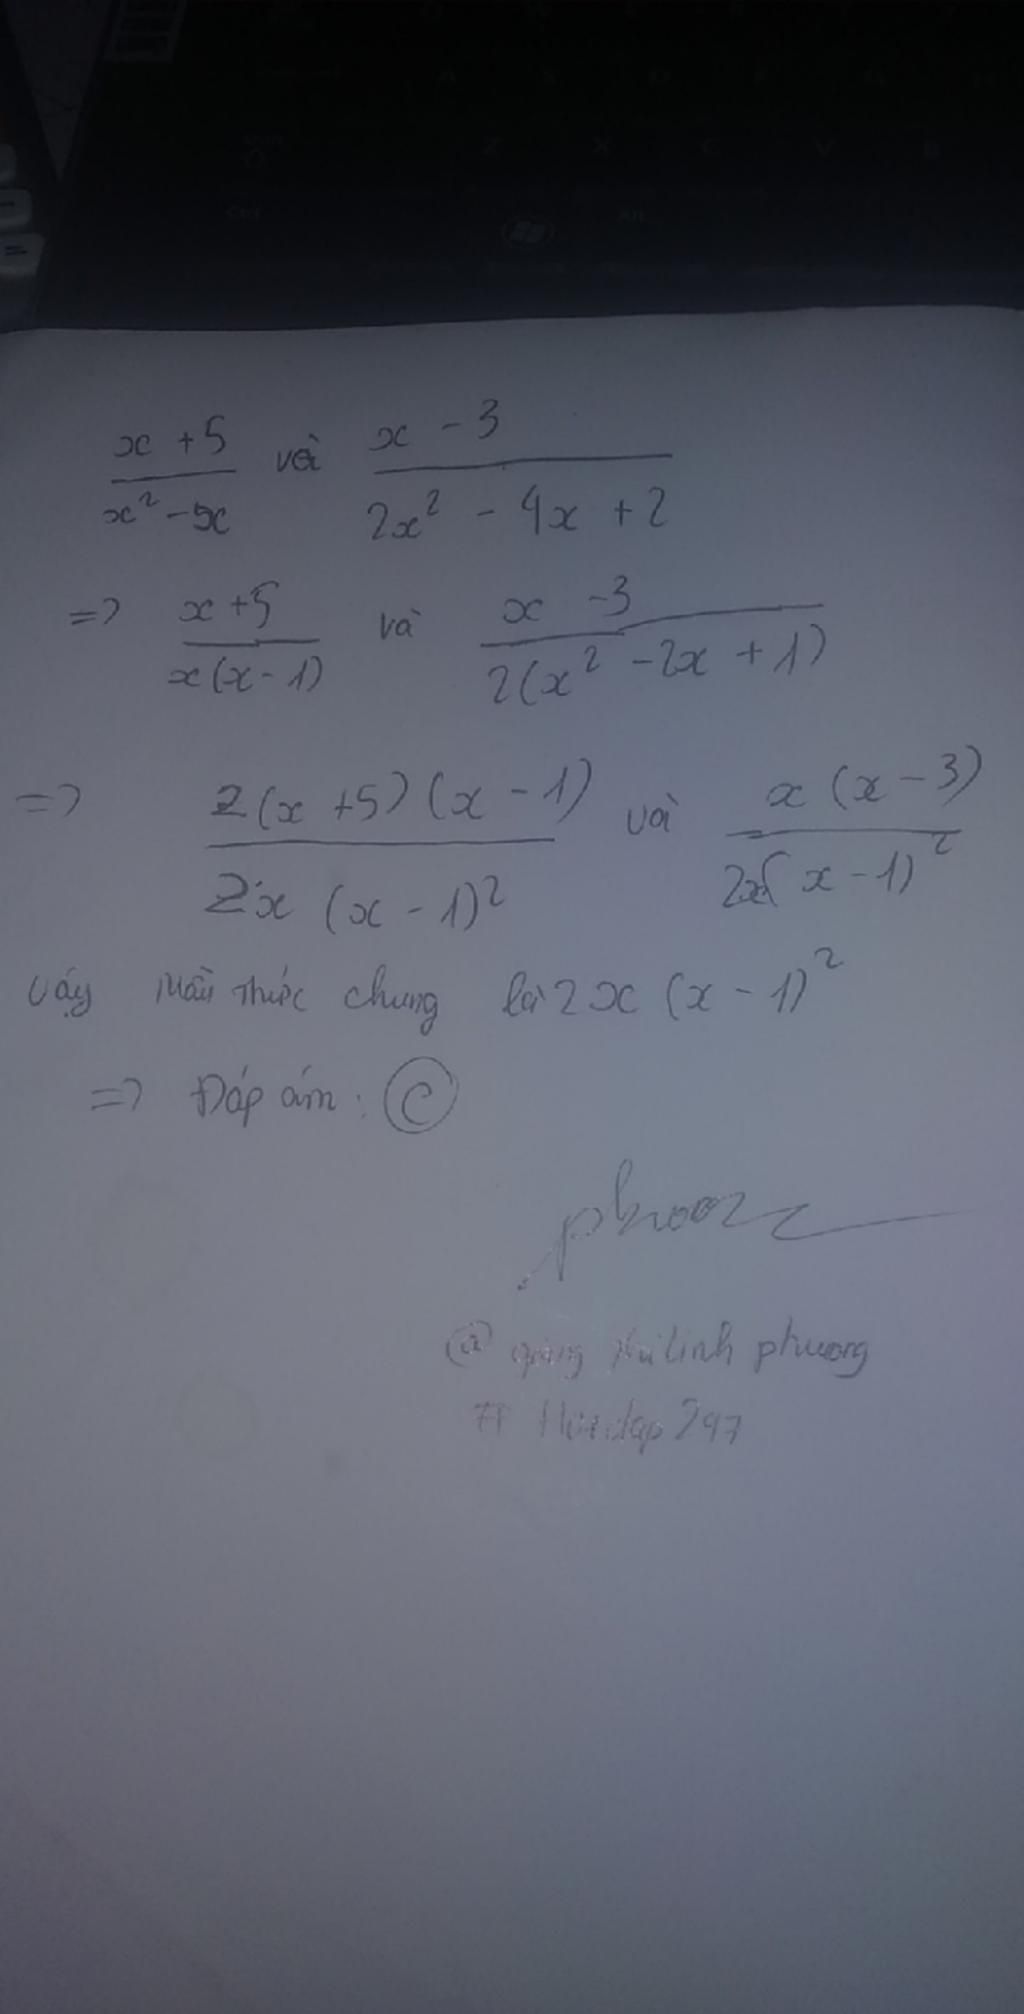 x + 5 / x² - 5x và x - 3 / 2x² - 4x + 2
=> x + 5 / x(x - 1) và x - 3 / 2(x² - 2x + 1)
=> 2(x + 5)(x - 1) / 2x (x - 1)² và x (x - 3) / 2x(x - 1)²
Vậy mẫu thức chung là 2x (x - 1)²
=> Đáp án: C
@ linh phương
# Hoidap247